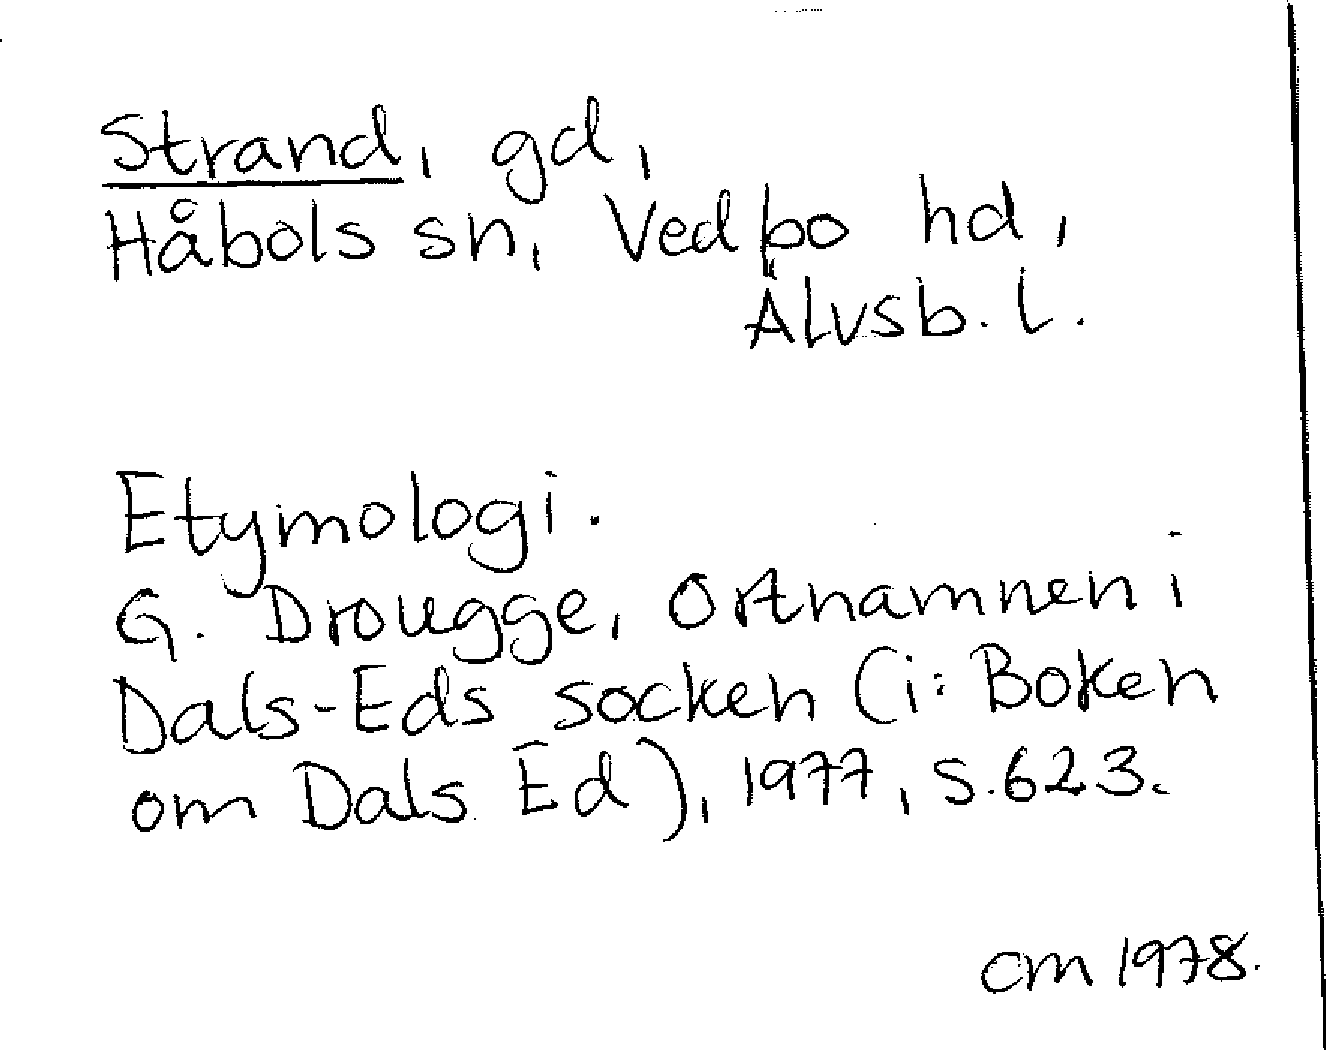 Strand, gd,
Håbols sn, Vedbo hd,
Älvsb. l.
Etymologi.
G. Drougge, Ortnamnen i
Dals-Eds socken (i: Boken
om Dals Ed), 1977, s. 623.
cm 1978.